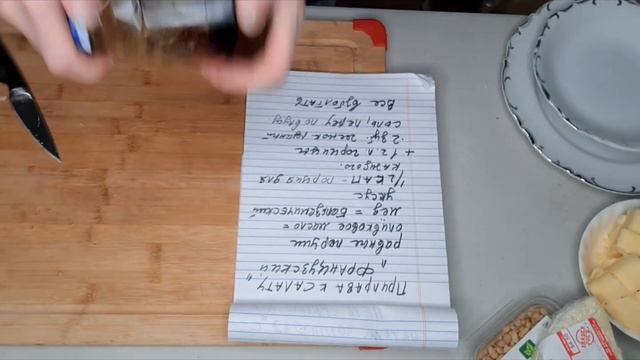 Приправа к САЛАТУ "
" ФРАНЦУЗСКИЙ
равные порции
оливковое масло =
мёд = Бальзамический
уксус
1/2 КАП - порция для
каждого.
+ 1 г. л горчицы
2 зуб. чеснок
соль, перец по вкусу
Все взболтать